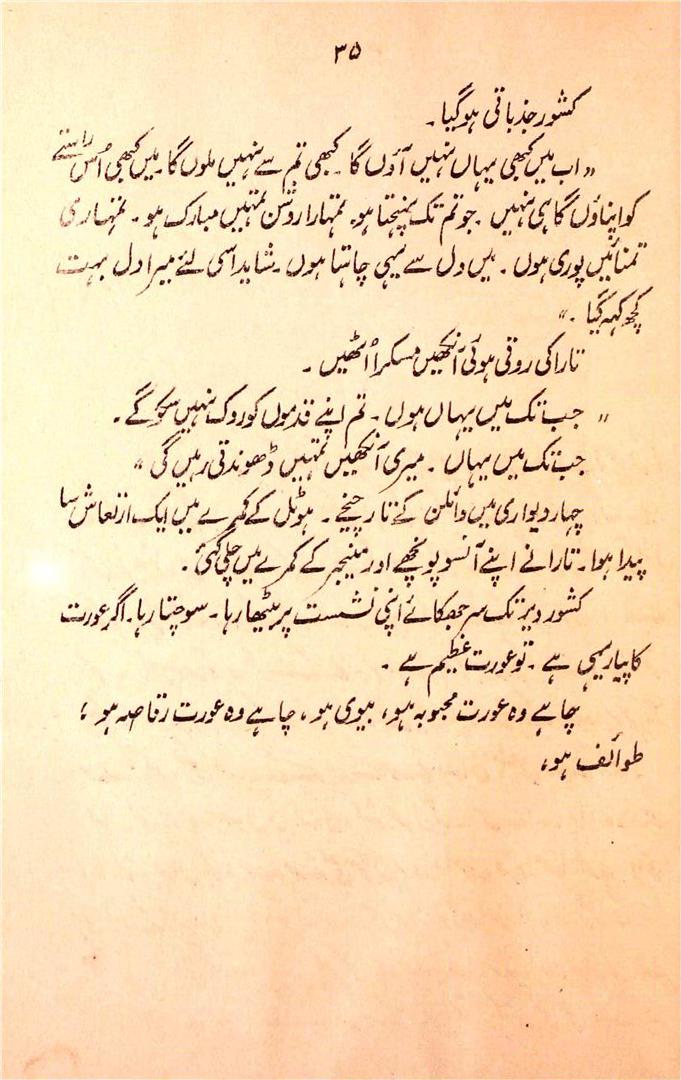 ۳۵
کشور جذباتی ہوگیا۔
"اب میں کبھی یہاں نہیں آؤں گا۔ کبھی تم سے نہیں ملوں گا۔ میں کبھی اُس راستے
کو اپناؤں گا ہی نہیں۔ جو تم تک پہنچتا ہو۔ تمہارا روشن تمہیں مبارک ہو۔ تمہاری
تمنائیں پوری ہوں۔ میں دل سے یہی چاہتا ہوں۔ شاید اسی لئے میرا دل بہت
کچھ کہہ گیا۔"
تارا کی روتی ہوئی آنکھیں مسکرا اُٹھیں۔
"جب تک میں یہاں ہوں۔ تم اپنے قدموں کو روک نہیں سکو گے۔
جب تک میں یہاں۔ میری آنکھیں تمہیں ڈھونڈتی رہیں گی"
چہار دیواری میں وائلن کے تار چیخے۔ ہوٹل کے کمرے میں ایک ارتعاش سا
پیدا ہوا۔ تارا نے اپنے آنسو پونچھے اور منیجر کے کمرے میں چلی گئی۔
کشور دیر تک سر جھکائے اپنی نشست پر بیٹھا رہا۔ سوچتا رہا۔ اگر عورت
کا پیار یہی ہے۔ تو عورت عظیم ہے۔
چاہے وہ عورت محبوبہ ہو، بیوی ہو، چاہے وہ عورت رقاصہ ہو؛
طوائف ہو،